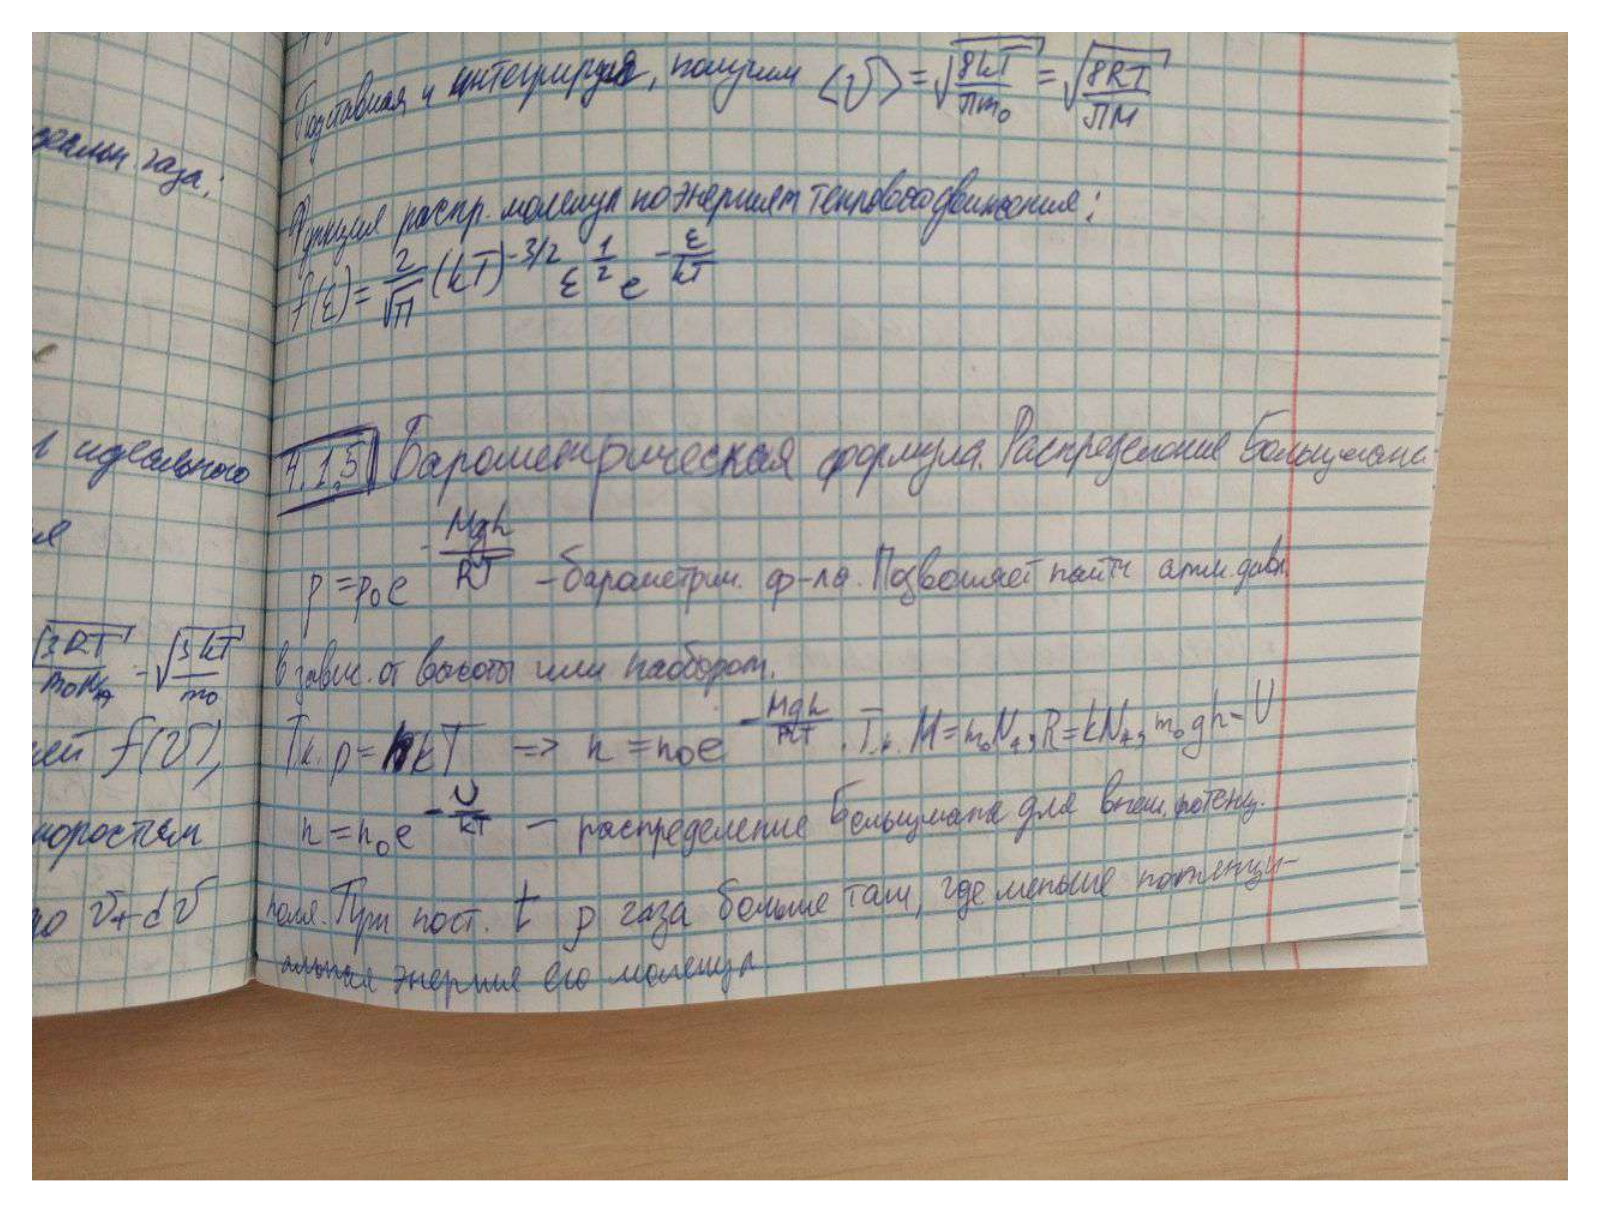 деальн. газа:
л идеального
ие
√(3RT/m₀N_A) = √(3kT/m₀)
ией f(v),
коростям
до v+dv
Подставляя и интегрируя, получим ⟨v⟩ = √(8kT/πm₀) = √(8RT/πM)
Функция распр. молекул по энергиям теплового движения:
f(ε) = 2/√π (kT)^(-3/2) ε^(1/2) e^(-ε/kT)
4.1.5 Барометрическая формула. Распределение Больцмана
p = p₀e^(-Mgh/RT) – барометрич. ф-ла. Позволяет найти атм. давл.
в завис. от высоты или наоборот.
Т.к. p = nkT => n = n₀e^(-Mgh/RT). Т.к. M = m₀N_A, R = kN_A, m₀gh = U
n = n₀e^(-U/kT) – распределение Больцмана для внеш. потенц.
поля. При пост. t p газа больше там, где меньше потенци-
альная энергия его молекул